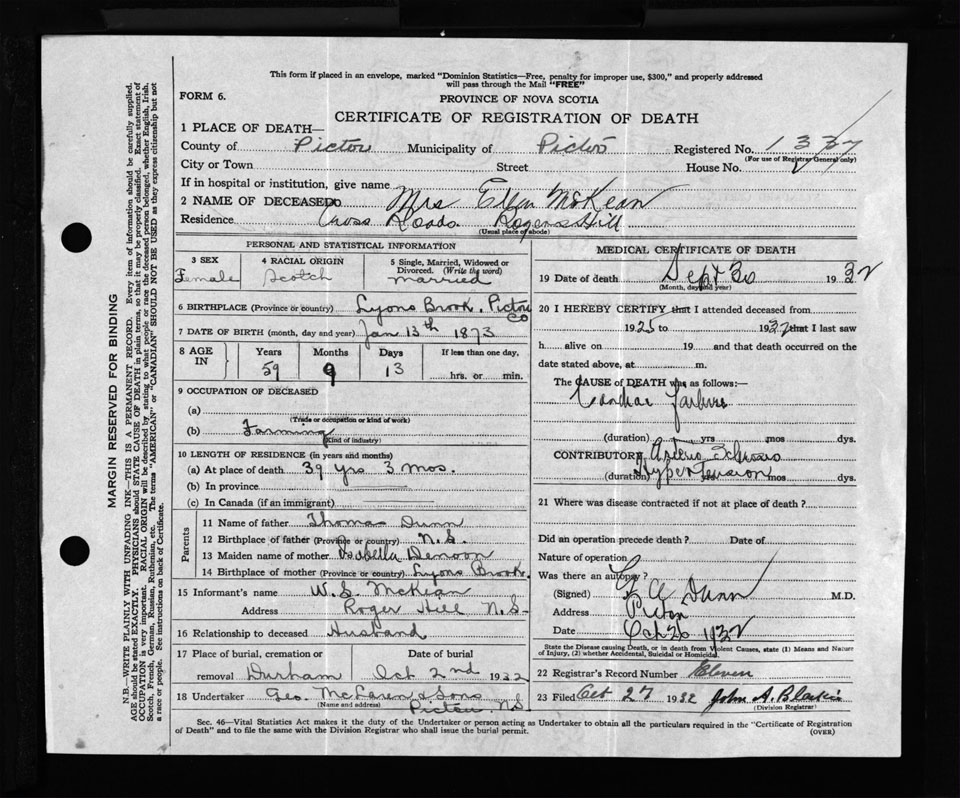 This form if placed in an envelope, marked "Dominion Statistics—Free, penalty for improper use, $300," and properly addressed
will pass through the Mail "FREE"
FORM 6.
PROVINCE OF NOVA SCOTIA
CERTIFICATE OF REGISTRATION OF DEATH
1 PLACE OF DEATH—
County of Pictou Municipality of Pictou Registered No. 1337
(For use of Registrar General only)
City or Town Street House No.
If in hospital or institution, give name
2 NAME OF DECEASED Mrs Ellen McKean
Residence Cross Roads Rogers Hill
(Usual place of abode)
PERSONAL AND STATISTICAL INFORMATION
3 SEX
Female
4 RACIAL ORIGIN
Scotch
5 Single, Married, Widowed or
Divorced. (Write the word)
Married
6 BIRTHPLACE (Province or country) Lyons Brook. Pictou
Co
7 DATE OF BIRTH (month, day and year) Jan 13th 1873
8 AGE
IN
Years Months Days If less than one day,
59 9 13 hrs. or min.
9 OCCUPATION OF DECEASED
(a)
(Trade or occupation or kind of work)
(b) Farming
(Kind of industry)
10 LENGTH OF RESIDENCE (in years and months)
(a) At place of death 39 yrs 3 mos.
(b) In province
(c) In Canada (if an immigrant)
Parents
11 Name of father Thomas Dunn
12 Birthplace of father (Province or country) N.S.
13 Maiden name of mother Isabella Denoon
14 Birthplace of mother (Province or country) Lyons Brook.
15 Informant's name W. S. McKean
Address Roger Hill N.S.
16 Relationship to deceased Husband
17 Place of burial, cremation or Date of burial
removal Durham Oct 2nd 1932
18 Undertaker Geo. McLaren & Sons
(Name and address) Pictou N.S.
MEDICAL CERTIFICATE OF DEATH
19 Date of death Sept 30 1932
(Month, day and year)
20 I HEREBY CERTIFY that I attended deceased from
1925 to 1932 that I last saw
h alive on 19 and that death occurred on the
date stated above, at m.
The CAUSE of DEATH was as follows:—
Cardiac Failure
(duration) yrs mos dys.
CONTRIBUTORY Arterio Sclerosis
Hypertension
(duration) yrs mos dys.
21 Where was disease contracted if not at place of death?
Did an operation precede death? Date of
Nature of operation
Was there an autopsy?
(Signed) Dunn M.D.
Address Pictou
Date Oct 26 1932
State the Disease causing Death, or in death from Violent Causes, state (1) Means and Nature
of Injury, (2) whether Accidental, Suicidal or Homicidal.
22 Registrar's Record Number Eleven
23 Filed Oct 27 1932 John A.
(Division Registrar)
Sec. 46—Vital Statistics Act makes it the duty of the Undertaker or person acting as Undertaker to obtain all the particulars required in the "Certificate of Registration
of Death" and to file the same with the Division Registrar who shall issue the burial permit. (OVER)
MARGIN RESERVED FOR BINDING
N.B.—WRITE PLAINLY WITH UNFADING INK—THIS IS A PERMANENT RECORD. Every item of information should be carefully supplied.
AGE should be stated EXACTLY. PHYSICIANS should STATE CAUSE OF DEATH in plain terms, so that it may be properly classified. Exact statement of
OCCUPATION is very important. RACIAL ORIGIN will be described by stating to what people or race the deceased person belonged, whether English, Irish,
Scotch, French, German, Russian, Ruthenian, etc. The terms "AMERICAN" or "CANADIAN" SHOULD NOT BE USED as they express citizenship but not
a race or people. See instructions on back of Certificate.